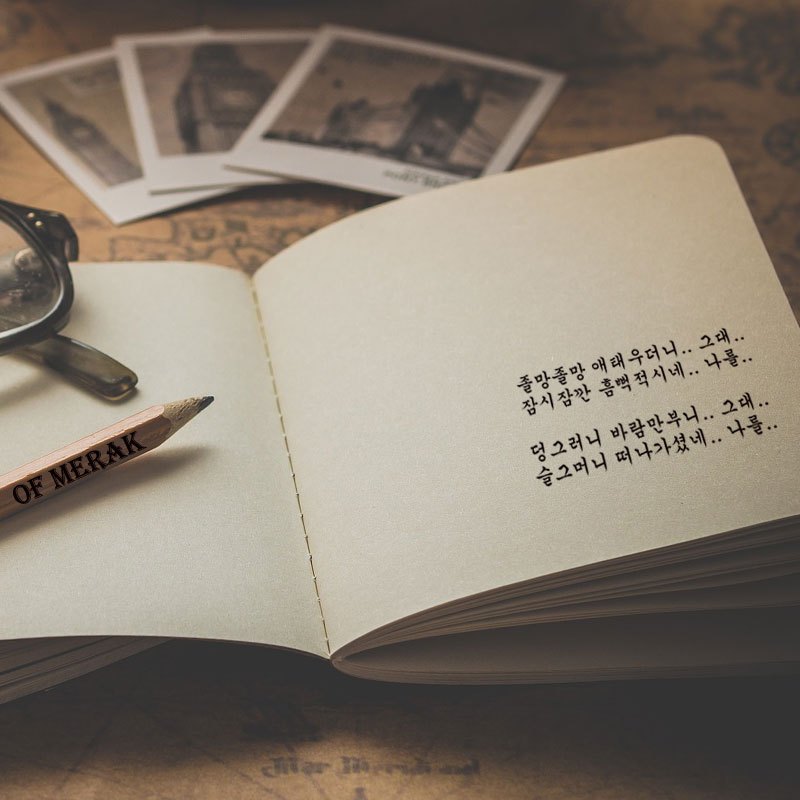 졸망졸망 애태우더니.. 그대..
잠시잠깐 흠뻑적시네.. 나를..
덩그러니 바람만부니.. 그대..
슬그머니 떠나가셨네.. 나를..
OF MERAK